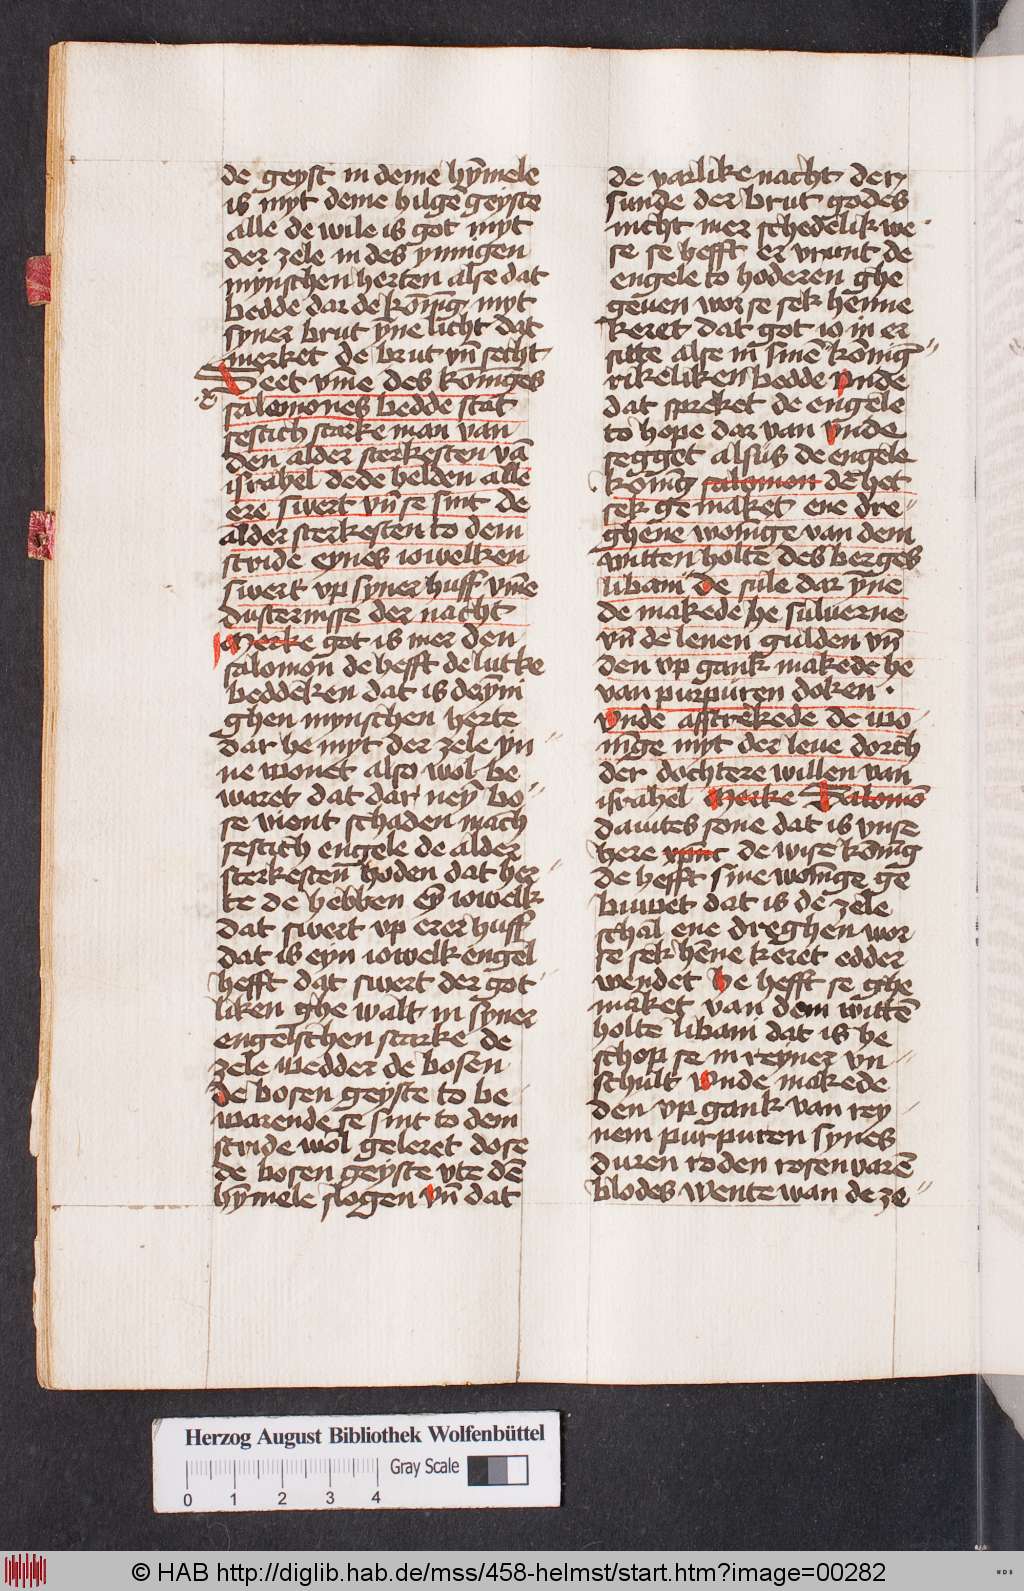 de geyst in deme hȳmele
is myt deme hilge geyste
alle de wile is got myt
der zele in des ynnigen
mynschen herten alse dat
bedde dar de kōnig myt
syner brut ȳne licht dat
merket de brut vn̄ secht
Seet vm̄e des kōniges
salomones bedde stat
sestich starke man van
den alder sterkesten vā
israhel dede helden alle
ere swert vn̄ se sint de
alder sterkesten to dem
stride eynes iowelken
swert vp syner huff vm̄e
dusternisse der nacht
Merke got is mer den
salomon̄ de hefft de lutke
beddeken dat is deȳni
ghen mynschen herte
dar he myt der zele yn
ne wonet also wol be
waret dat dar neȳ bo
se vient schaden mach
sestich engele de alder
sterkesten̄ hoden dat her
te de hebben eȳ iowelk
dat swert vp erer huff
dat is eyn iowelk engel
hefft dat swert der got
liken ghe walt in syner
engelschen starke de
zele wedder de bosen
de bosen geyste to be
warende se sint to dem
stride wol geleret dose
de bosen geyste vte dē
hȳmele slogen vn̄ dat
de varlike nacht der
sunde der brut godes
nicht mer schedelik we
se se hefft er vrunt de
engele to hoderen ghe
geuen wor se sek hen̄ne
keret dat got io in er
sitte alse in̄ sinē kōnig
rikeliken bedde vnde
dat spreket de engele
to hope dar van vnde
segget alsus de engele
kōnig salomon dē het
sek ge maket ene dre
ghene wonīge van dem
witten holte des berges
libani de sule dar ȳne
de makede he suluerne
vn̄ de lenen gulden vn̄
den vp gank makede he
van purpuren doken .
vnde affstrekede de wo
nīge myt der leue dorch
der dochtere willen van
israhel Merke Salomō
dauites sone dat is vnse
here xpūc de wise kōnig
de hefft sine wonīge ge
buwet dat is de zele
schal ene dreghen wor
se sek hēne keret edder
wendet he hefft se ghe
maket van dem wittē
holte libani dat is he
schop se in reyner vn
schult vnde makede
den vp gank van rey
nem purpuren synes
duren roden rosenvarē
blodes wente wan de ze
Herzog August Bibliothek Wolfenbüttel
Gray Scale
0 1 2 3 4
© HAB http://diglib.hab.de/mss/458-helmst/start.htm?image=00282